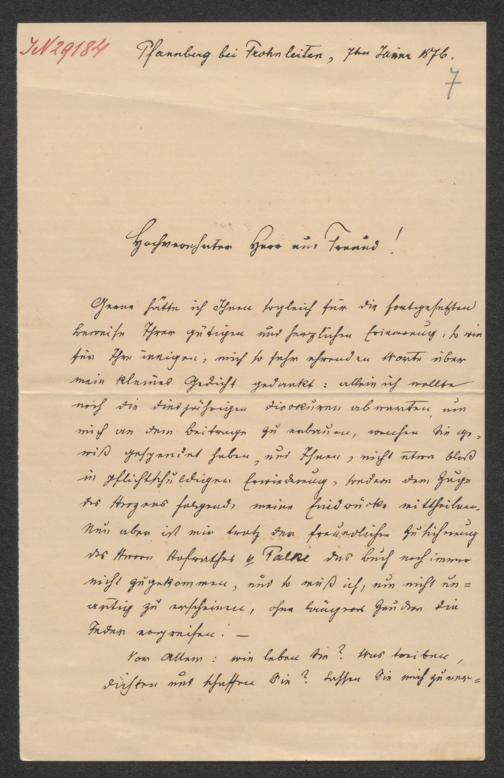 IN 29184
Pfannberg bei Frohnleiten, 7ten Jänner 1876.
7
Hochverehrter Herr und Freund!
Gerne hätte ich Ihnen sogleich für die fortgesetzten
Beweise Ihrer gütigen und herzlichen Erinnerung, so wie
für Ihre innigen, mich so sehr ehrenden Worte über
mein kleines Gedicht gedankt: allein ich wollte
noch die diesjährigen Dioskuren abwarten, um
mich an dem Beitrage zu erbauen, welchen Sie ge-
wiß gespendet haben, und Ihnen, nicht etwa bloß
in pflichtschuldigen Erwiederung, sondern dem Zuge
des Herzens folgend, meine Eindrücke mittheilen.
Nun aber ist mir trotz der freundlichen Zusicherung
des Herrn Hofrathes v Falke das Buch noch immer
nicht zugekommen, und so muß ich, um nicht un=
artig zu erscheinen, ohne längeres Zaudern die
Feder ergreifen! —
Vor Allem: wie leben Sie? Was treiben,
dichten und schaffen Sie? Lassen Sie mich zuver=